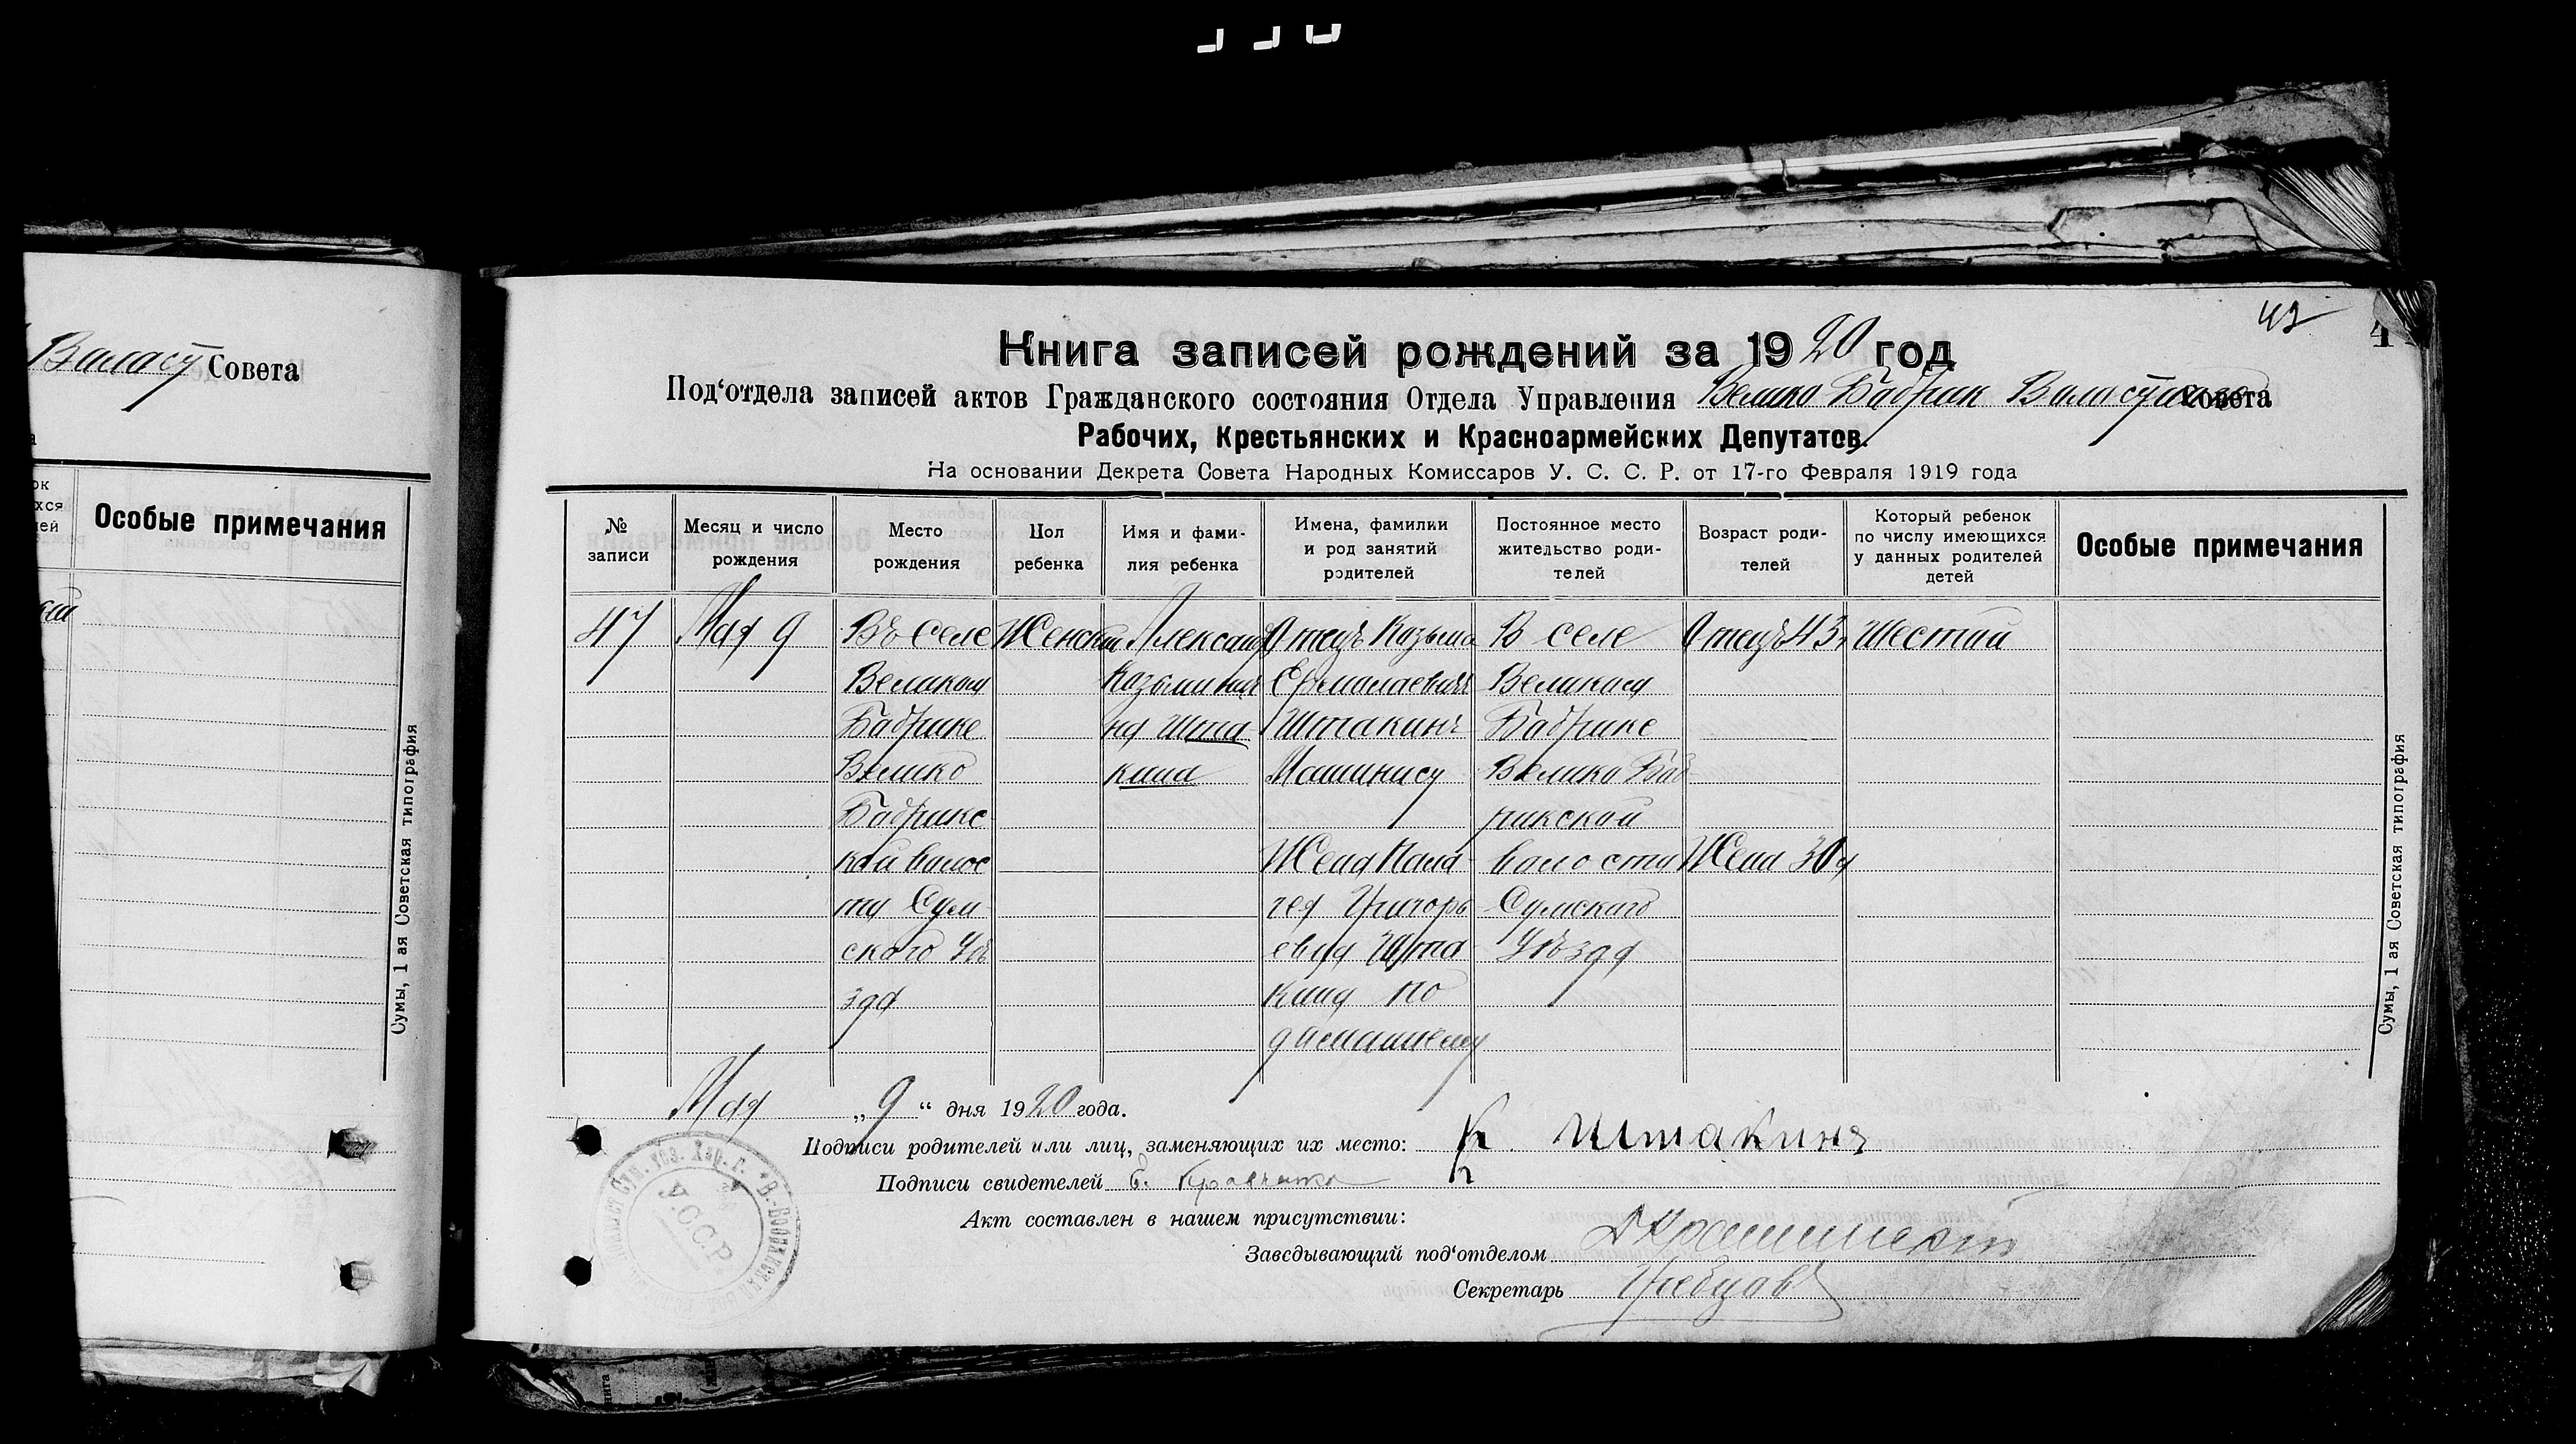 Валост Совета
Особые примечания
Сумы, 1 ая Советская типография
42
Книга записей рождений за 1920 год
Под‘отдела записей актов Гражданского состояния Отдела Управления Велико Бобрик Совета
Рабочих, Крестьянских и Красноармейских Депутатов.
На основании Декрета Совета Народных Комиссаров У. С. С. Р. от 17-го Февраля 1919 года
№ записи
Месяц и число рождения
Место рождения
Пол ребенка
Имя и фами-
лия ребенка
Имена, фамилии
и род занятий
родителей
Постоянное место
жительство роди-
телей
Возраст роди-
телей
Который ребенок
по числу имеющихся
у данных родителей
детей
Особые примечания
47
Мая 9
Въ Селе
Великом
Бобрике
Велико
Бобрикс
кой волос
ти Сум
ского Уѣ
зда
Женский
Козьминиш
на Шта
кина
Отецъ Козьма
Ермолаевичъ
Штакинъ
Машинист
Жена Пела
гея Григорь
евна Шта
кина по
домашнему
В селе
Великом
Бобрике
Велико Боб
рикской
волости
Сумского
Уѣзда
Отецъ 43
Жена 30
Шестой
Мая „9“ дня 1920 года.
Подписи родителей или лиц, заменяющих их место: К. Штакинъ
Подписи свидетелей Е. Кравченко
Акт составлен в нашем присутствии:
Заведывающий под‘отделом
Секретарь
У.С.С.Р.
Сумы, 1 ая Советская типография